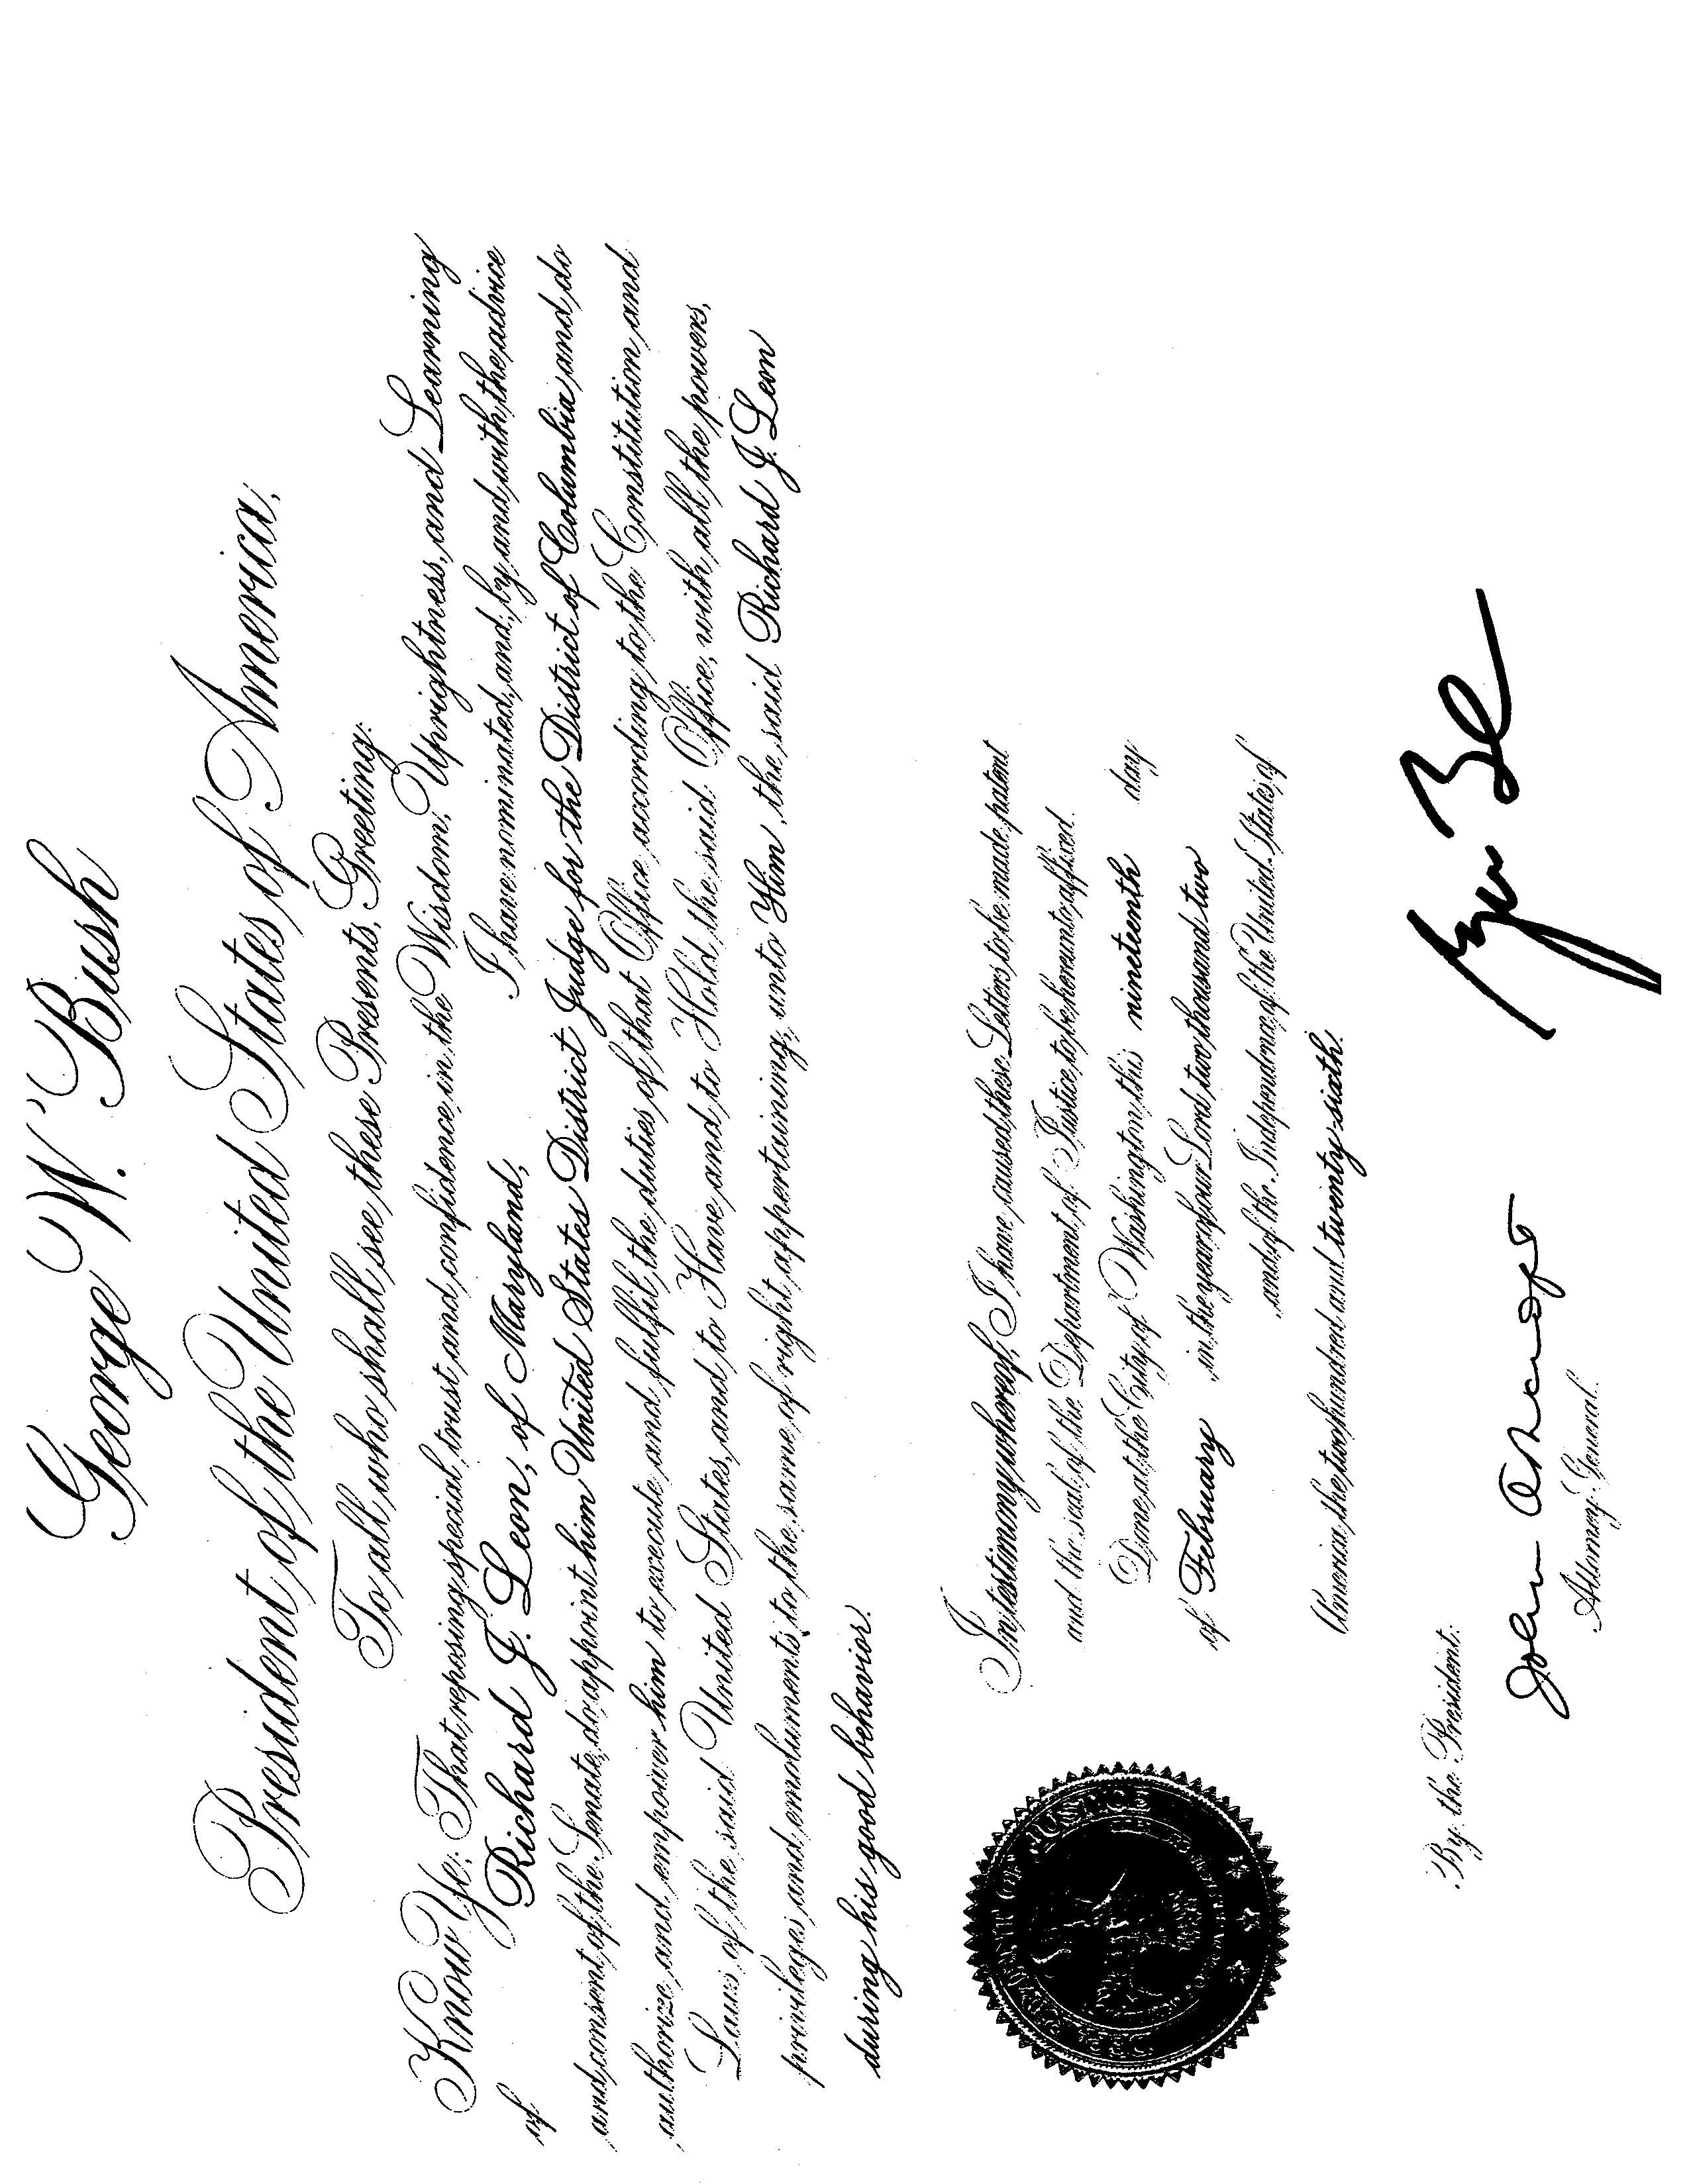 George W. Bush
President of the United States of America,
To all who shall see these Presents, Greeting:
Know Ye: That reposing special trust and confidence in the Wisdom, Uprightness, and Learning
of Richard J. Leon, of Maryland, I have nominated, and, by and with the advice
and consent of the Senate, do appoint him United States District Judge for the District of Columbia and do
authorize and empower him to execute and fulfil the duties of that Office according to the Constitution and
Laws of the said United States, and to Have and to Hold the said Office, with all the powers,
privileges and emoluments to the same of right appertaining, unto Him, the said Richard J. Leon
during his good behavior.
In testimony whereof, I have caused these Letters to be made patent
and the seal of the Department of Justice to be hereunto affixed.
Done at the City of Washington this nineteenth day
of February in the year of our Lord two thousand two
and of the Independence of the United States of
America the two hundred and twenty-sixth.
By the President:
John Ashcroft
Attorney General.
OF JUSTICE